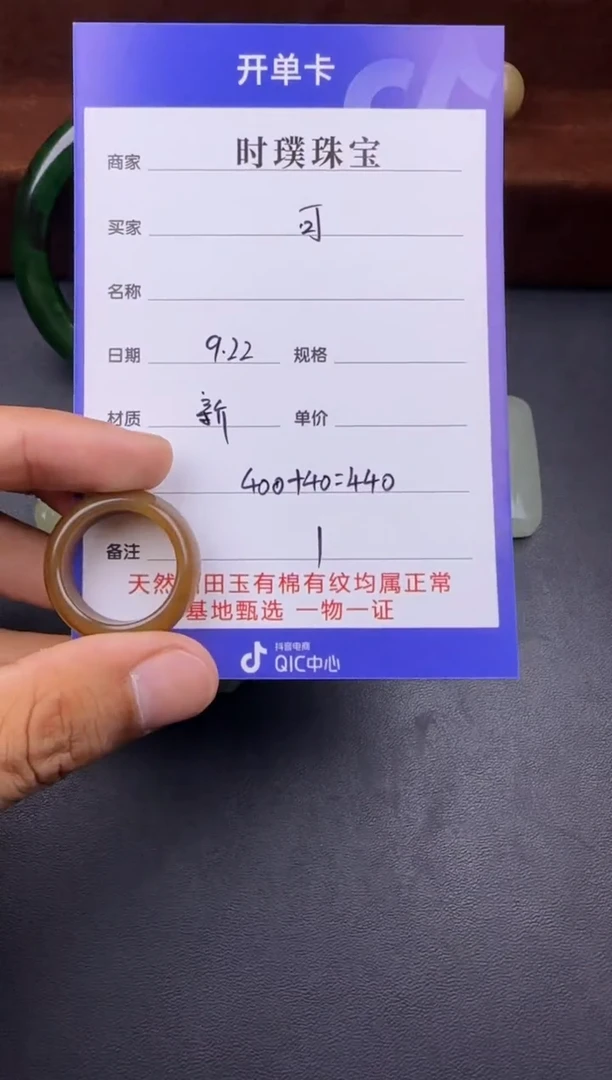 开单卡
商家 时璞珠宝
买家 可
名称
日期 9.22 规格
材质 新 单价
400+40=440
备注 1
天然 田玉有棉有纹均属正常
基地甄选 一物一证
抖音电商
QIC中心